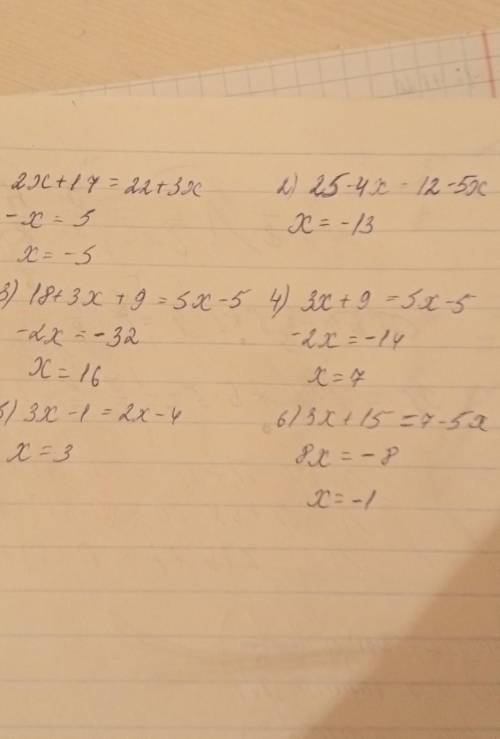 2x+17=22+3x
-x=5
x=-5
2) 25-4x=12-5x
x=-13
3) 18+3x+9=5x-5
-2x=-32
x=16
4) 3x+9=5x-5
-2x=-14
x=7
5) 3x-1=2x-4
x=3
6) 3x+15=7-5x
8x=-8
x=-1